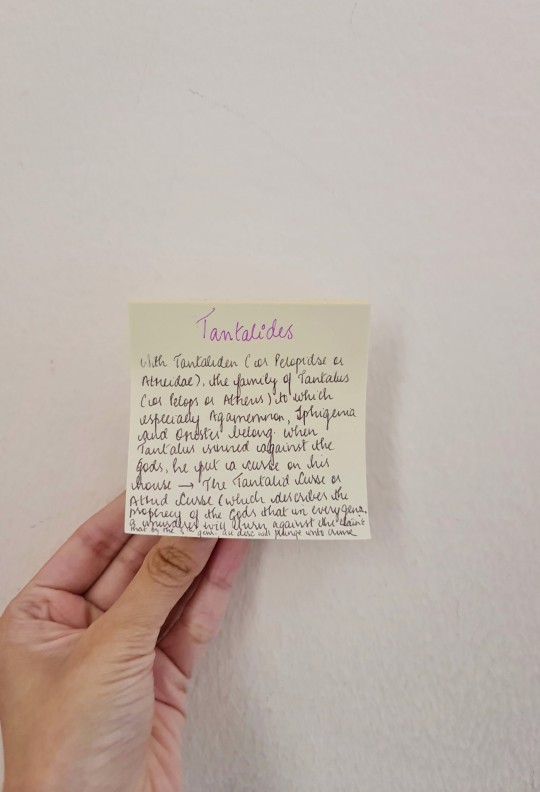 Tantalides
With Tantaliden (or Pelopidse or
Atreidae), the family of Tantalus
(or Pelops or Athens) to which
especially Agamemnon, Iphigenia
and Orestes belong. When
Tantalus sinned against the
gods, he put a curse on his
house → The Tantalid Curse or
Atrid Curse (which describes the
prophecy of the Gods that in every gena.
a murderer will turn against the
that by the gena. all desc will plunge into